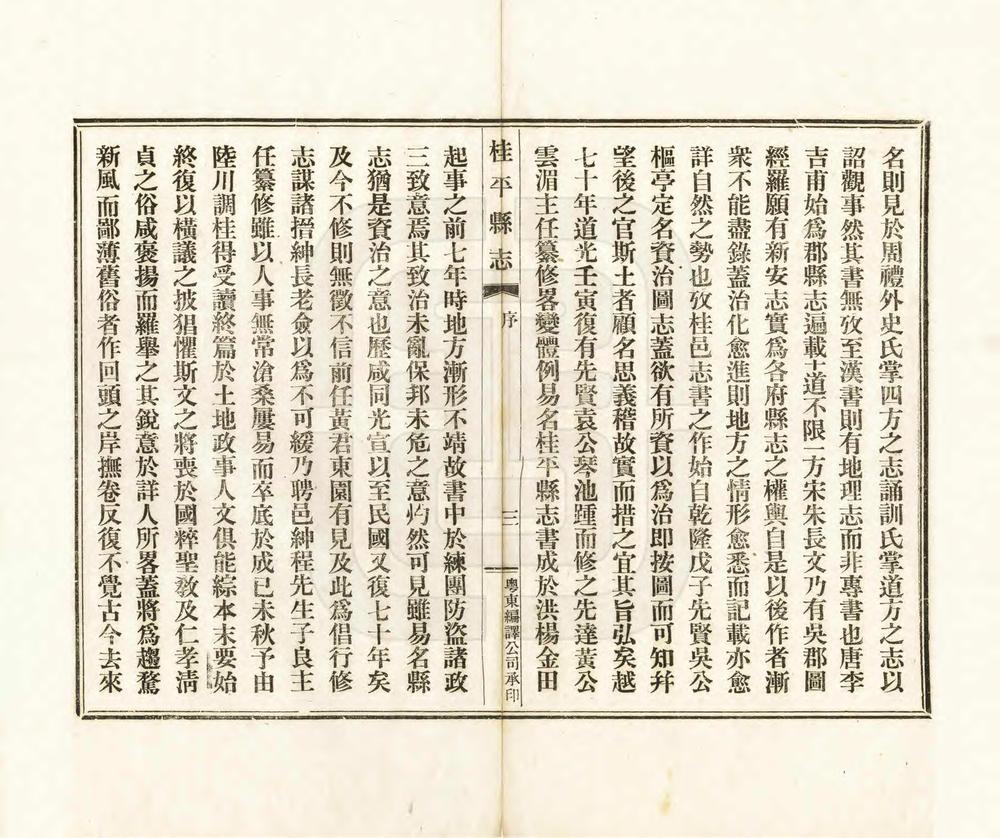 名則見於周禮外史氏掌四方之志誦訓氏掌道方之志以
詔觀事然其書無攷至漢書則有地理志而非專書也唐李
吉甫始爲郡縣志遍載十道不限一方宋朱長文乃有吳郡圖
經羅願有新安志實爲各府縣志之權輿自是以後作者漸
衆不能盡錄蓋治化愈進則地方之情形愈悉而記載亦愈
詳自然之勢也攷桂邑志書之作始自乾隆戊子先賢吳公
樞亭定名資治圖志蓋欲有所資以爲治即按圖而可知幷
望後之官斯土者顧名思義稽故實而措之宜其旨弘矣越
七十年道光壬寅復有先賢袁公琴池踵而修之先達黃公
雲湄主任纂修畧變體例易名桂平縣志書成於洪楊金田
桂平縣志
序
三
粵東編譯公司承印
起事之前七年時地方漸形不靖故書中於練團防盜諸政
三致意焉其致治未亂保邦未危之意灼然可見雖易名縣
志猶是資治之意也歷咸同光宣以至民國又復七十年矣
及今不修則無徵不信前任黃君東園有見及此爲倡行修
志謀諸搢紳長老僉以爲不可緩乃聘邑紳程先生子良主
任纂修雖以人事無常滄桑屢易而卒底於成已未秋予由
陸川調桂得受讀終篇於土地政事人文俱能綜本末要始
終復以橫議之披猖懼斯文之將喪於國粹聖敎及仁孝淸
貞之俗咸褒揚而羅舉之其銳意於詳人所畧蓋將爲趨騖
新風而鄙薄舊俗者作回頭之岸撫卷反復不覺古今去來